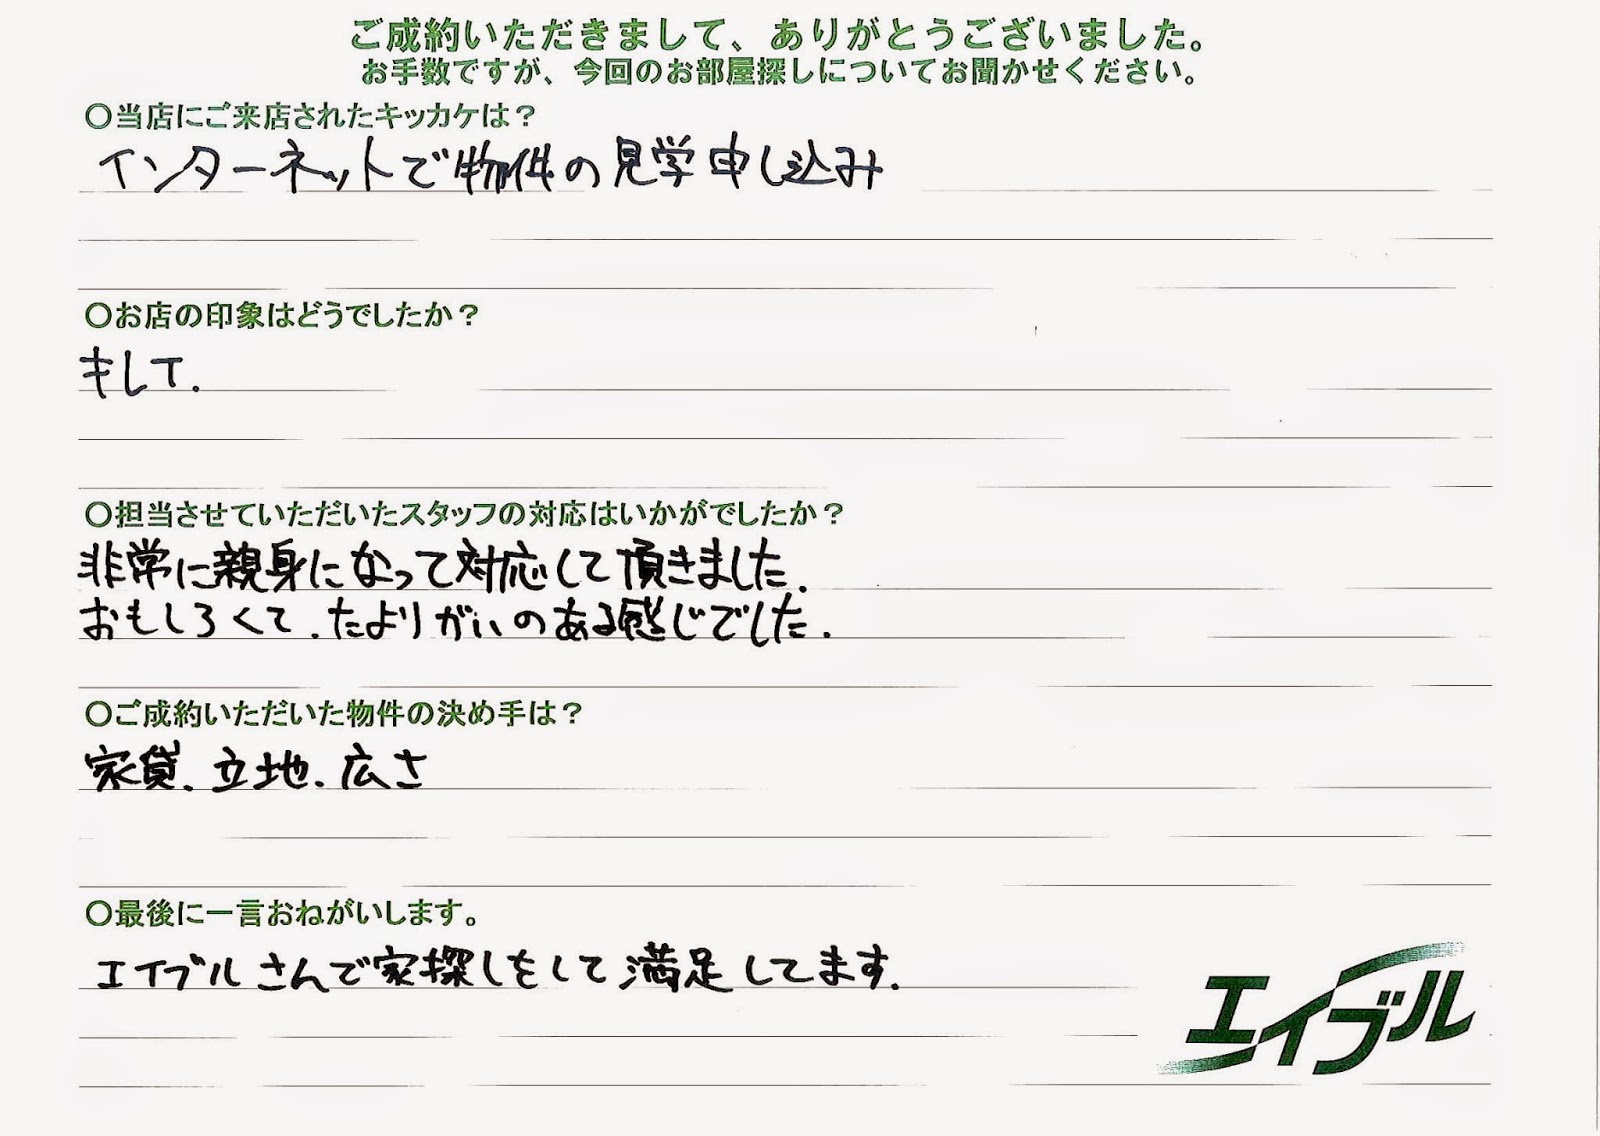 ご成約いただきまして、ありがとうございました。
お手数ですが、今回のお部屋探しについてお聞かせください。
〇当店にご来店されたキッカケは？
インターネットで物件の見学申し込み
〇お店の印象はどうでしたか？
キレイ.
〇担当させていただいたスタッフの対応はいかがでしたか？
非常に親身になって対応して頂きました.
おもしろくて.たよりがいのある感じでした.
〇ご成約いただいた物件の決め手は？
家賃.立地.広さ
〇最後に一言おねがいします。
エイブルさんで家探しをして満足してます.
エイブル